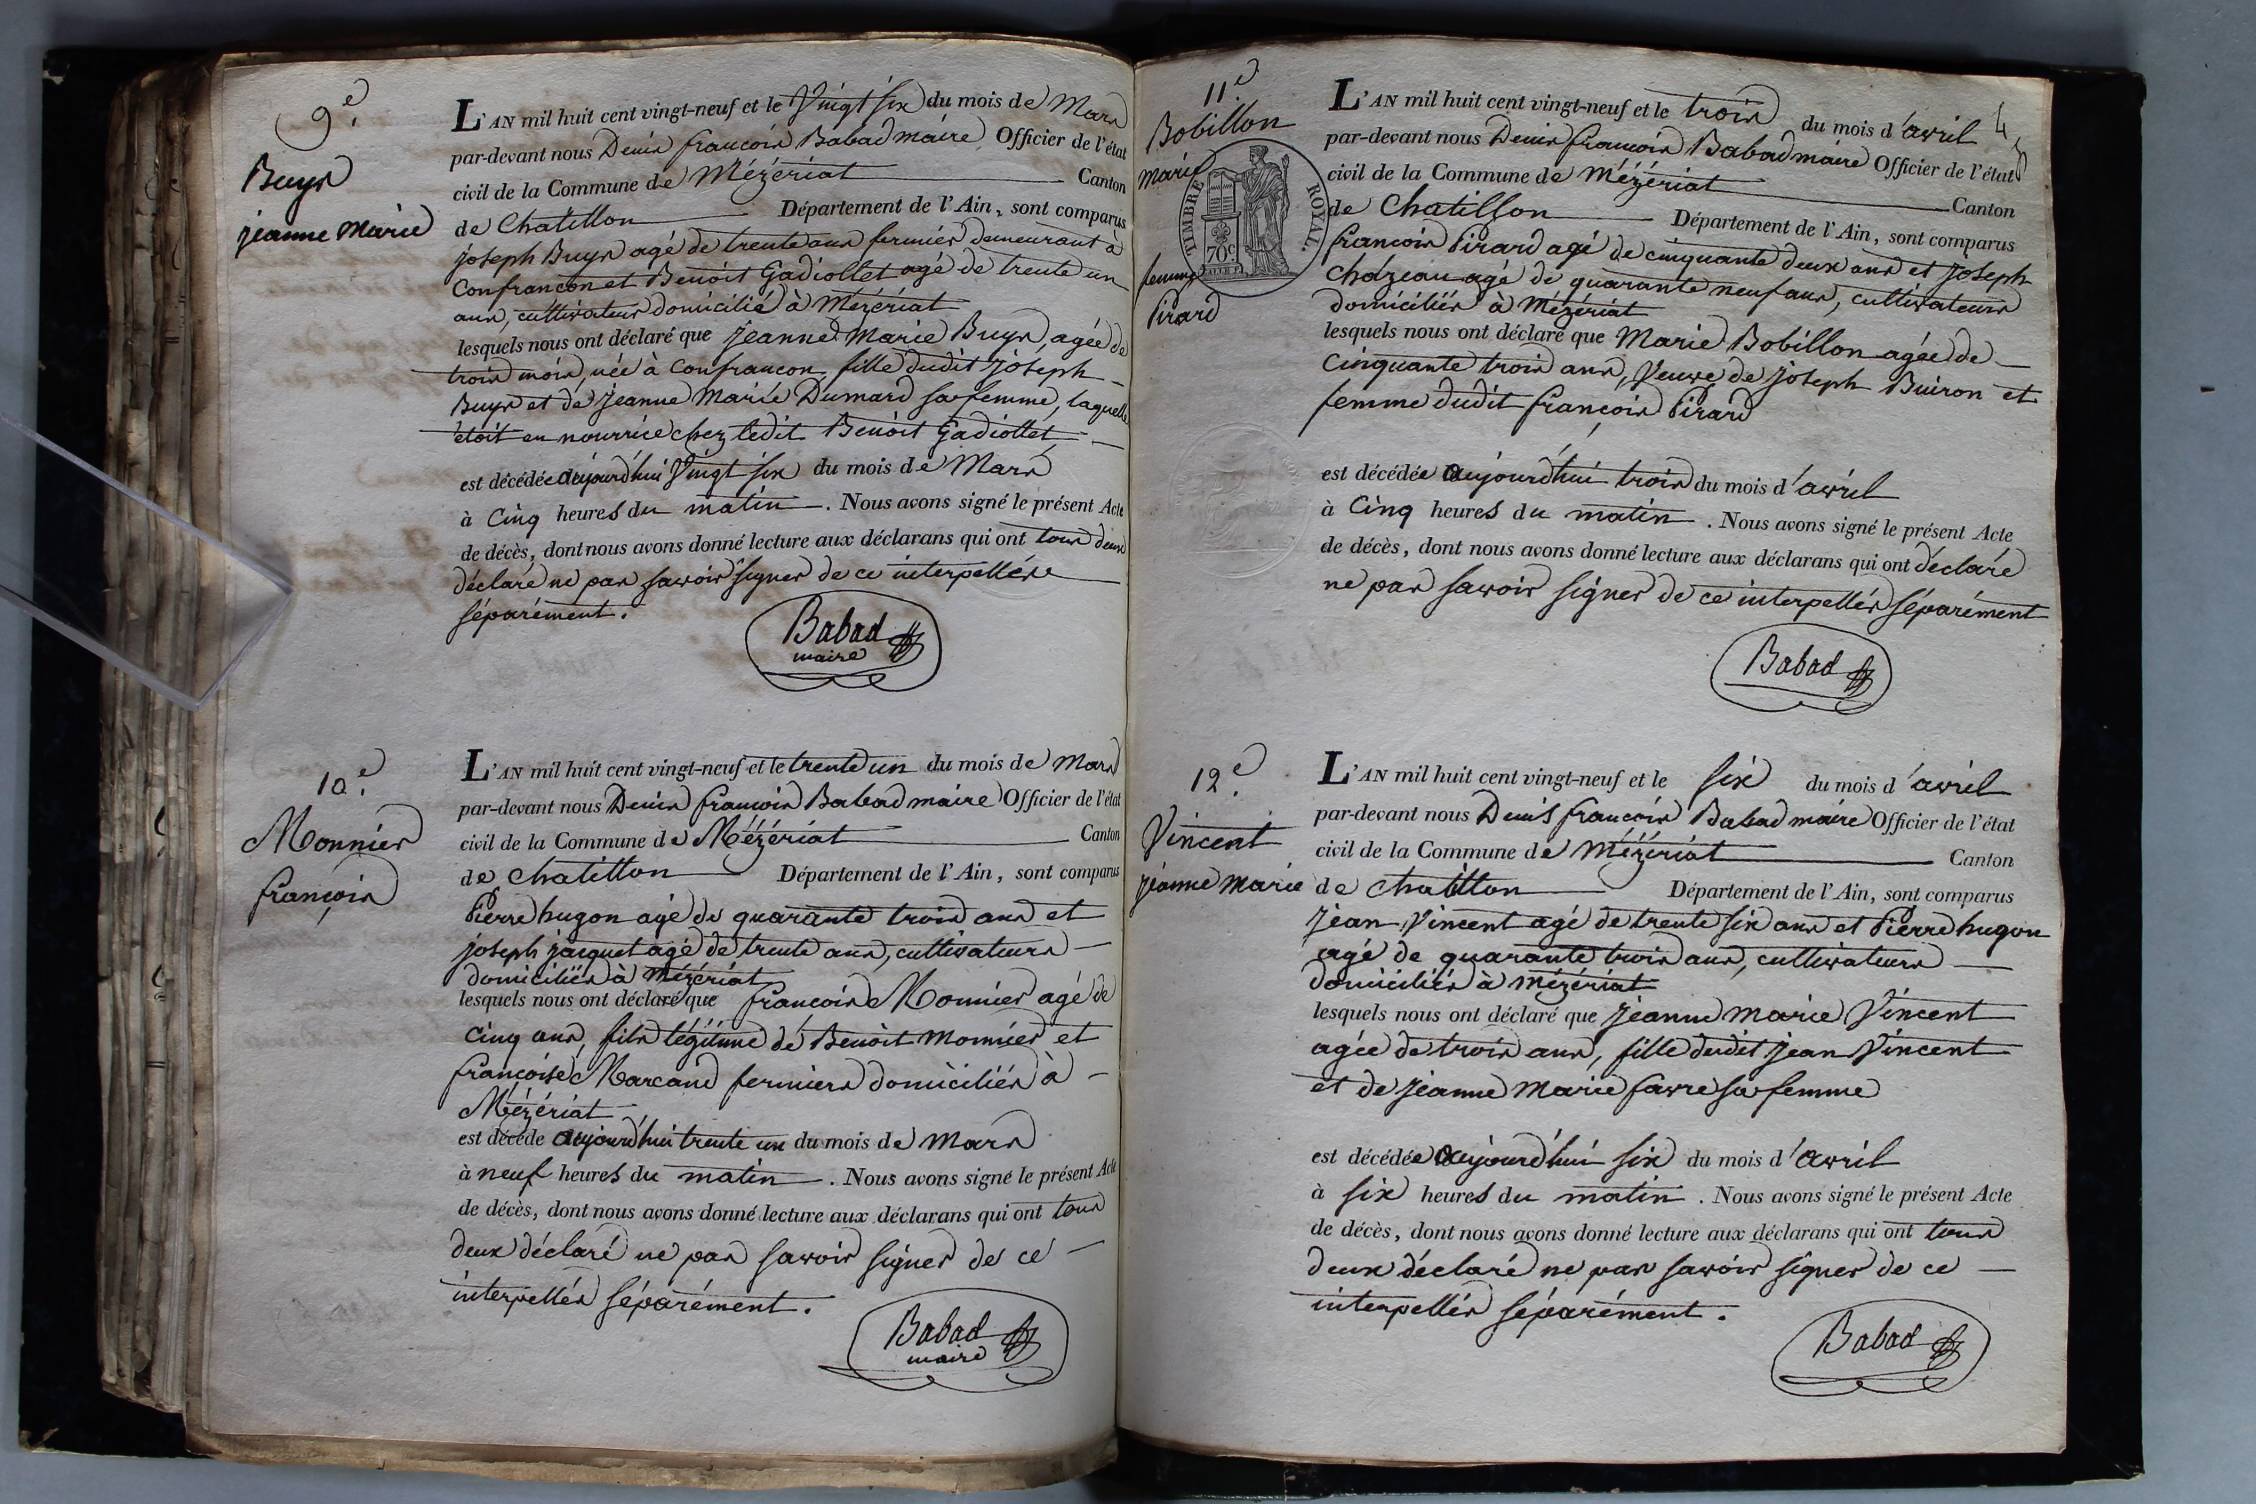 9.e
Buys
jeanne Marie
L'AN mil huit cent vingt-neuf et le Vingt six du mois de Mars
par-devant nous Denis françois Babad maire Officier de l'état
civil de la Commune de Mézériat Canton
de Chatillon Département de l'Ain, sont comparus
joseph Buys agé de trente ans fermier demeurant à
Confrancon et Benoit Gadiollet agé de trente un
ans, cultivateur domicilié à Mézériat
lesquels nous ont déclaré que Jeanne Marie Buys, agée de
trois mois, née à Confrancon fille dudit joseph
Buys et de jeanne Marie Dumard sa femme, laquelle
étoit en nourrice chez ledit Benoit Gadiollet,
est décédée aujourd'hui Vingt six du mois de Mars
à Cinq heures du matin. Nous avons signé le présent Acte
de décès, dont nous avons donné lecture aux déclarans qui ont tous deux
déclaré ne pas savoir signer de ce interpellés
séparément.
Babad
maire
10.e
Monnier
françois
L'AN mil huit cent vingt-neuf et le trente un du mois de Mars
par-devant nous Denis françois Babad maire Officier de l'état
civil de la Commune de Mézériat Canton
de Chatillon Département de l'Ain, sont comparus
Pierre hugon agé de quarante trois ans et
joseph jacquet agé de trente ans, cultivateurs
domiciliés à Mézériat
lesquels nous ont déclaré que françois Monnier agé de
Cinq ans, fils légitime de Benoit Monnier et
françoise Marcand fermiers domiciliés à
Mézériat
est décédé aujourd'hui trente un du mois de Mars
à neuf heures du matin. Nous avons signé le présent Acte
de décès, dont nous avons donné lecture aux déclarans qui ont tous
deux déclaré ne pas savoir signer de ce
interpellés séparément.
Babad
maire
11.e
Bobillon
marie
femme
Pirard
TIMBRE ROYAL.
70c.
L'AN mil huit cent vingt-neuf et le trois du mois d'avril
par-devant nous Denis françois Babad maire Officier de l'état
civil de la Commune de Mézériat Canton
de Chatillon Département de l'Ain, sont comparus
françois Pirard agé de cinquante deux ans et joseph
Chozeau agé de quarante neuf ans, cultivateurs
domiciliés à Mézériat
lesquels nous ont déclaré que Marie Bobillon agée de
Cinquante trois ans, Veuve de joseph Buiron et
femme dudit françois Pirard
est décédée aujourd'hui trois du mois d'avril
à Cinq heures du matin. Nous avons signé le présent Acte
de décès, dont nous avons donné lecture aux déclarans qui ont déclaré
ne pas savoir signer de ce interpellés séparément
Babad
12.e
Vincent
jeanne marie
L'AN mil huit cent vingt-neuf et le six du mois d'avril
par-devant nous Denis françois Babad maire Officier de l'état
civil de la Commune de Mézériat Canton
de Chatillon Département de l'Ain, sont comparus
jean Vincent agé de trente six ans et Pierre hugon
agé de quarante trois ans, cultivateurs
domiciliés à Mézériat
lesquels nous ont déclaré que jeanne marie Vincent
agée de trois ans, fille dudit jean Vincent
et de jeanne Marie favre sa femme
est décédée aujourd'hui six du mois d'avril
à six heures du matin. Nous avons signé le présent Acte
de décès, dont nous avons donné lecture aux déclarans qui ont tous
deux déclaré ne pas savoir signer de ce
interpellés séparément.
Babad